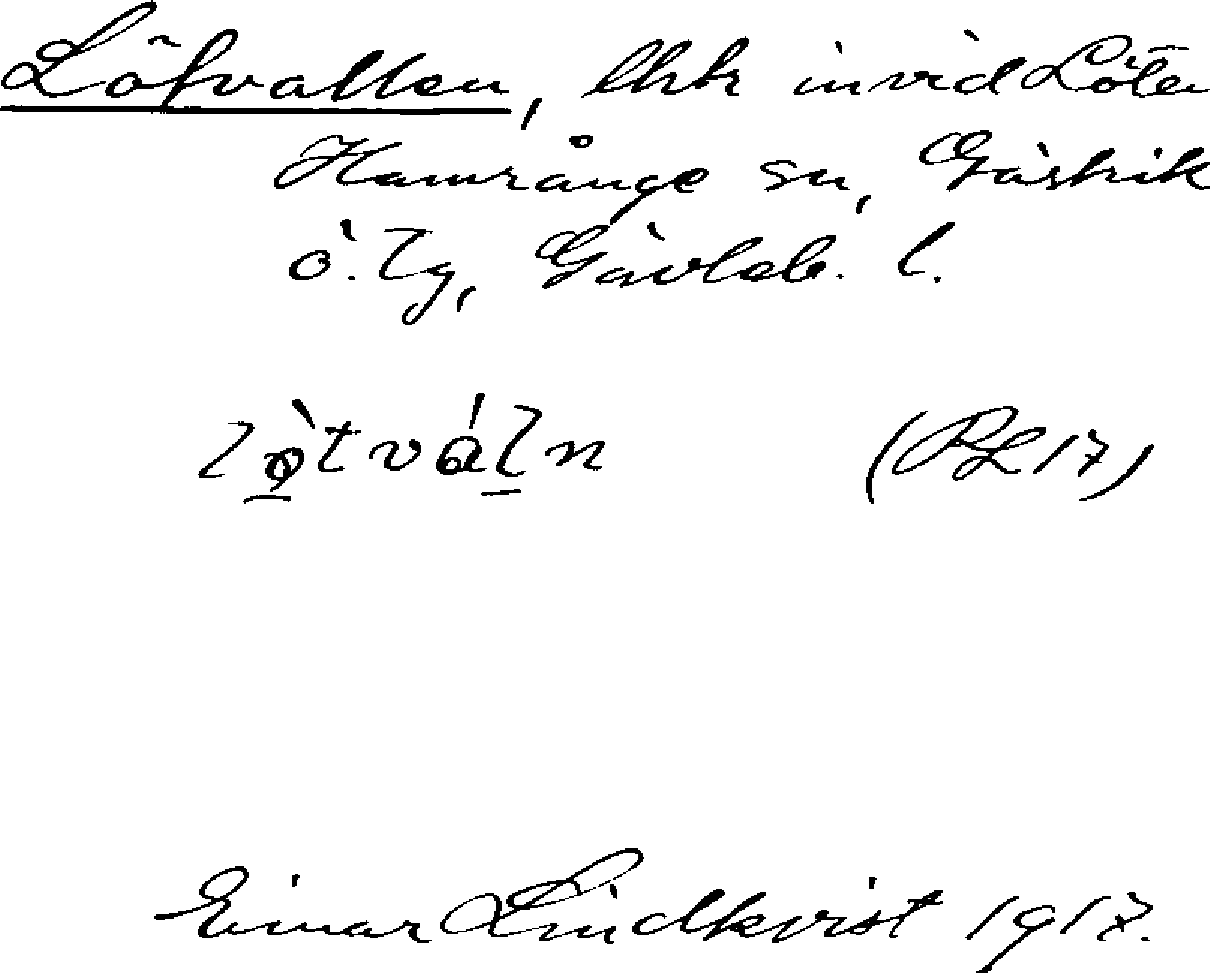 Lötvallen, lhk invid Löten
Hamrånge sn, Gästrik
ö. tg, Gävleb. l.
(RL 17)
Einar Lindkvist 1917.